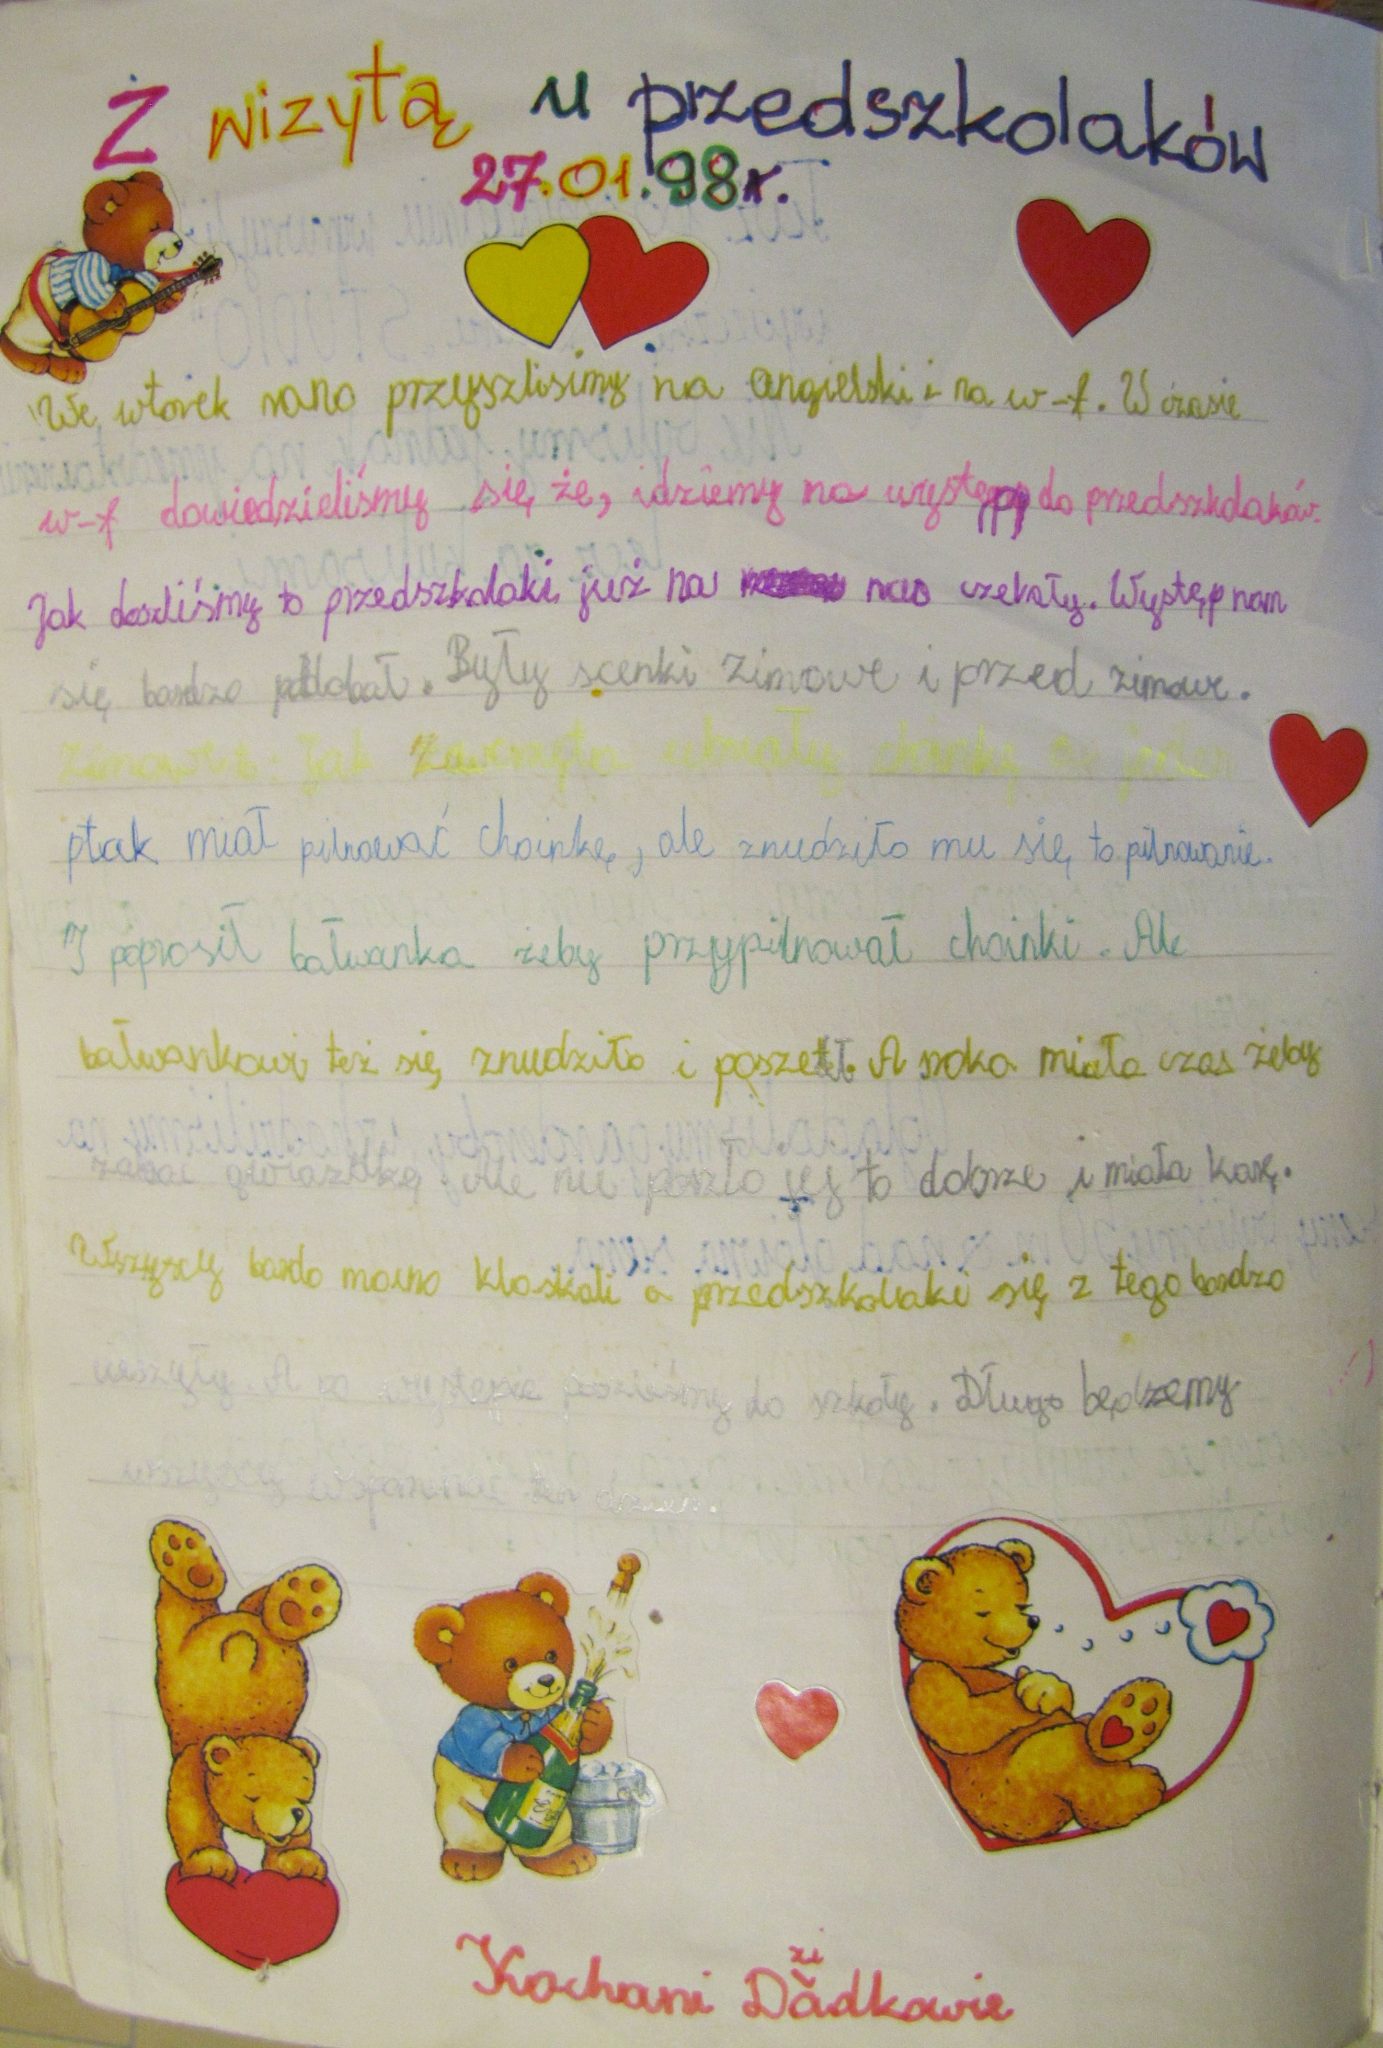 Ż wizytą u przedszkolaków
27.01.98r.
We wtorek rano przyszlisimy na angielski i na w-f. W czasie
w-f dowiedzieliśmy się że, idziemy na występy do przedszkolaków.
Jak doszliśmy to przedszkolaki już na nas czekały. Występ nam
się bardzo podobał. Były scenki zimowe i przed zimowe.
Jak zwierzęta ubrały choinkę jeden
ptak miał pilnować choinkę, ale znudziło mu się to pilnowanie.
I poprosił bałwanka żeby przypilnował choinki. Ale
bałwankowi też się znudziło i poszedł. A sroka miała czas żeby
zabrać gwiazdkę, ale nie poszło jej to dobrze i miała karę.
Wszyscy bardo mocno kloskali a przedszkolaki się z tego bardzo
cieszyły. A po występie poszliśmy do szkoły. Długo będziemy
wszyscy wspominać ten dzień.
Kochani Dziadkowie